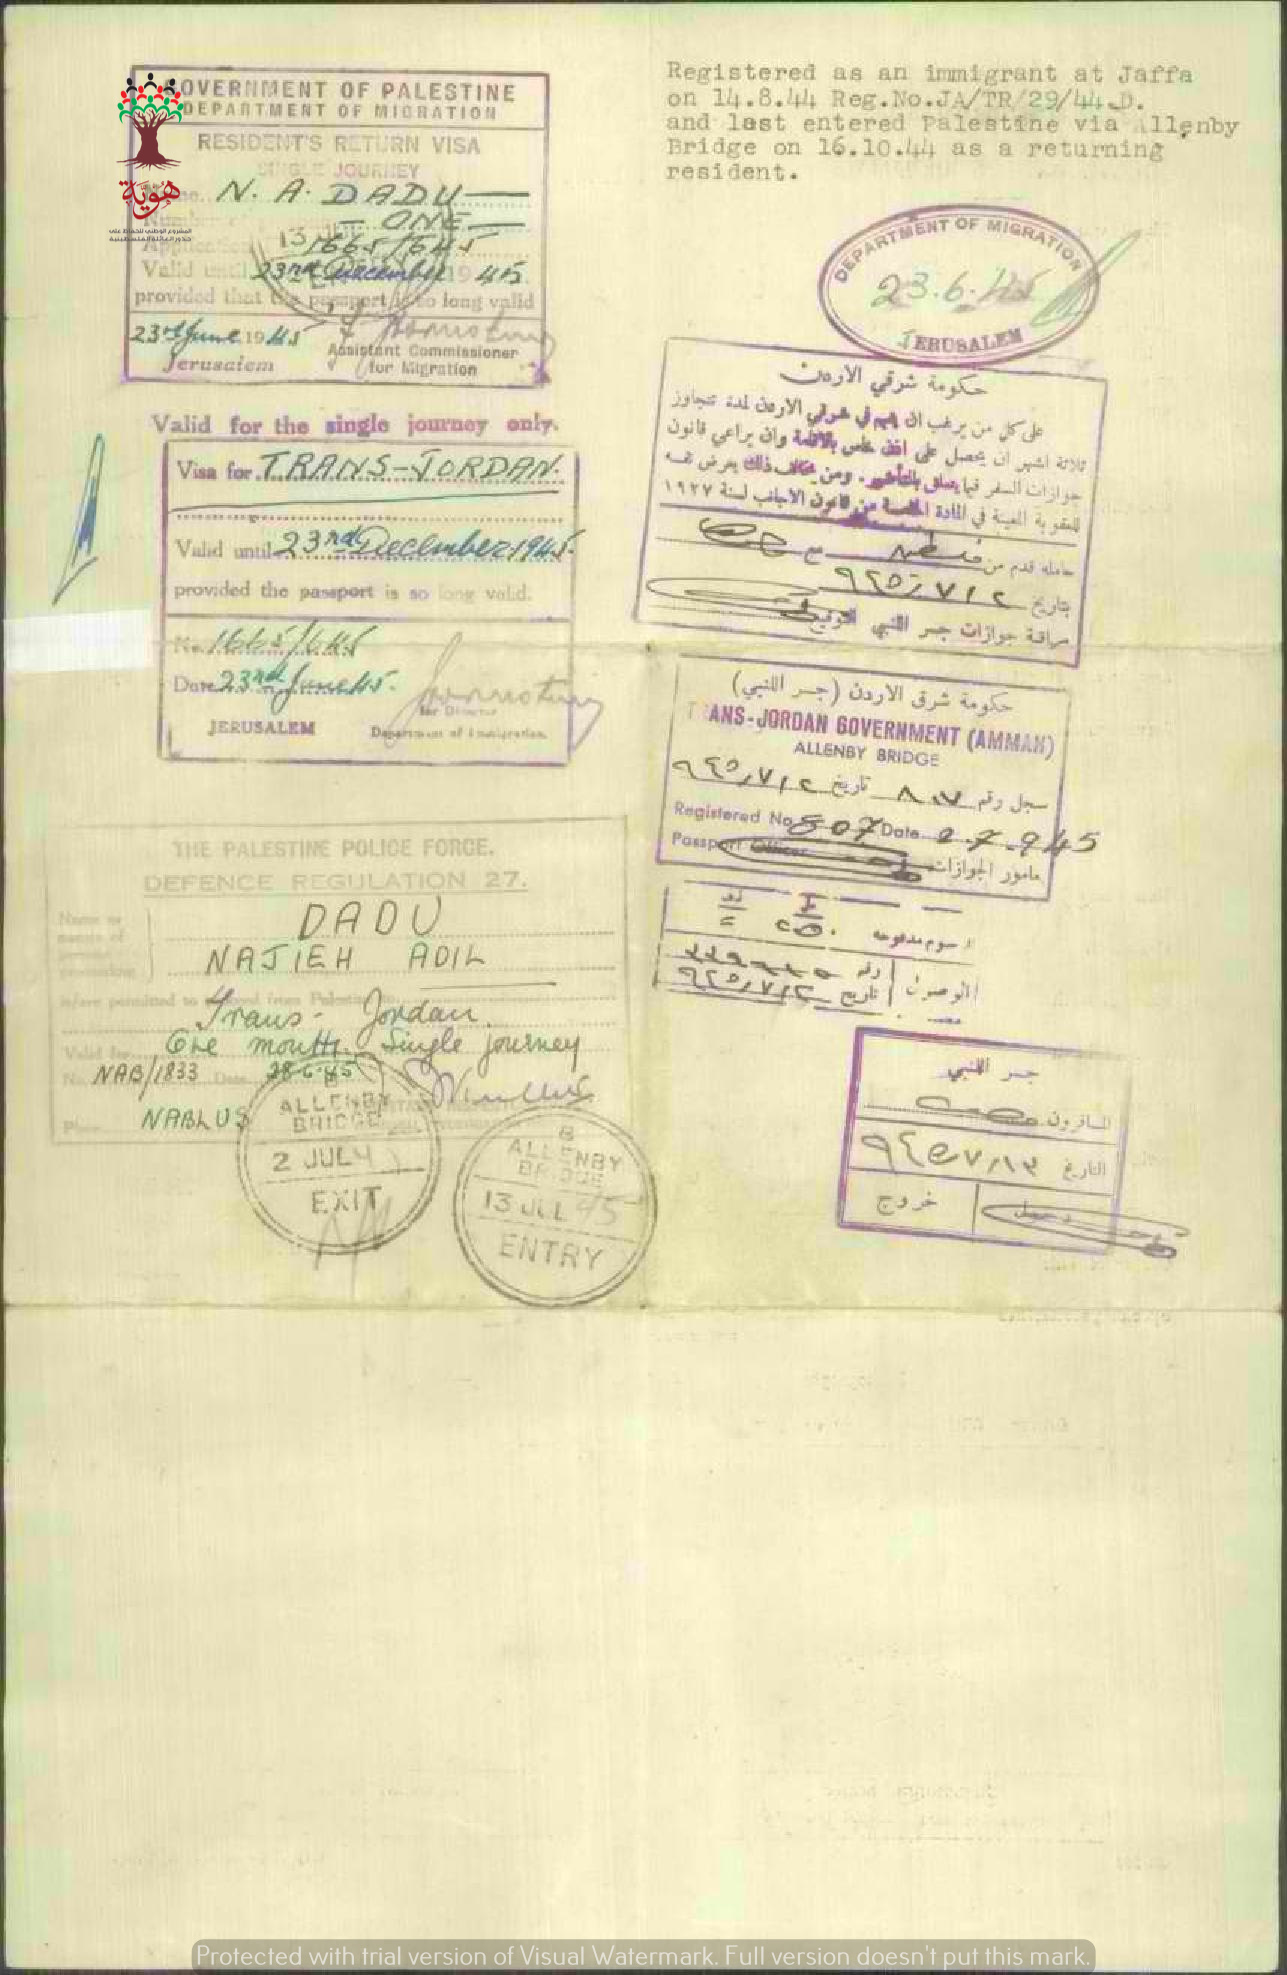 GOVERNMENT OF PALESTINE
DEPARTMENT OF MIGRATION
RESIDENT'S RETURN VISA
SINGLE JOURNEY
N. A. DADU
Number of — ONE —
Application 1665/645
Valid until 23rd December 1945
provided that the passport is so long valid
23rd June 1945
Jerusalem
Assistant Commissioner
for Migration
هوية
المشروع الوطني للحفاظ على
جذور العائلة الفلسطينية
Valid for the single journey only.
Visa for TRANS-JORDAN.
Valid until 23rd December 1945.
provided the passport is so long valid.
No. 1665/645
Date 23rd June 45.
JERUSALEM
for Director
Department of Immigration.
THE PALESTINE POLICE FORCE.
DEFENCE REGULATION 27.
Name or
names of
person
proceeding
DADU
NAJIEH ADIL
is/are permitted to proceed from Palestine to
Trans-Jordan
Valid for One month. Single journey
No. NAB/1833 Date 28-6-45
Place NABLUS
B
ALLENBY
BRIDGE
2 JUL 4
EXIT
B
ALLENBY
BRIDGE
13 JUL 45
ENTRY
Registered as an immigrant at Jaffa
on 14.8.44 Reg.No.JA/TR/29/44.D.
and last entered Palestine via Allenby
Bridge on 16.10.44 as a returning
resident.
DEPARTMENT OF MIGRATION
23.6.45
JERUSALEM
حكومة شرقي الاردن
على كل من يرغب ان يقيم في شرقي الاردن لمدة تتجاوز
ثلاثة اشهر ان يحصل على اذن خاص بالاقامة وان يراعي قانون
جوازات السفر فيما يتعلق بالتأشير. ومن يخالف ذلك يعرض نفسه
للعقوبة المعينة في المادة الخامسة من قانون الاجانب لسنة ١٩٢٧
حامله قدم من فلسطين مع
بتاريخ ٩٤٥/٧/٢
مراقبة جوازات جسر اللنبي التوقيع
حكومة شرق الاردن (جسر اللنبي)
TRANS-JORDAN GOVERNMENT (AMMAN)
ALLENBY BRIDGE
سجل رقم ٨٠٧ تاريخ ٩٤٥/٧/٢
Registered No 807 Date 2-7-945
Passport Officer
مامور الجوازات
رسوم مدفوعه
الوصول
رقم
تاريخ ٩٤٥/٧/٢
جسر اللنبي
المسافرون
التاريخ ٩٤٥/٧/١٣
خروج
Protected with trial version of Visual Watermark. Full version doesn't put this mark.